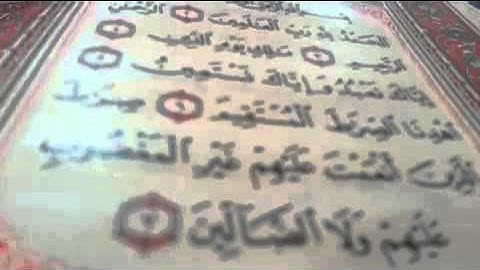 الحمد لله رب العالمين ١ الرحمن
الرحيم ٢ ملك يوم الدين ٣
إياك نعبد وإياك نستعين ٤
اهدنا الصراط المستقيم ٥ صراط
الذين أنعمت عليهم غير المغضوب
عليهم ولا الضالين ٧